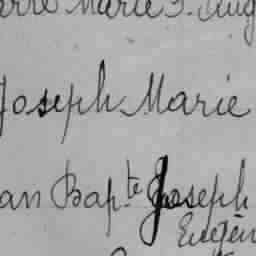 erre Marie F. Aug
Joseph Marie
an Bap.te Joseph
Eugèn